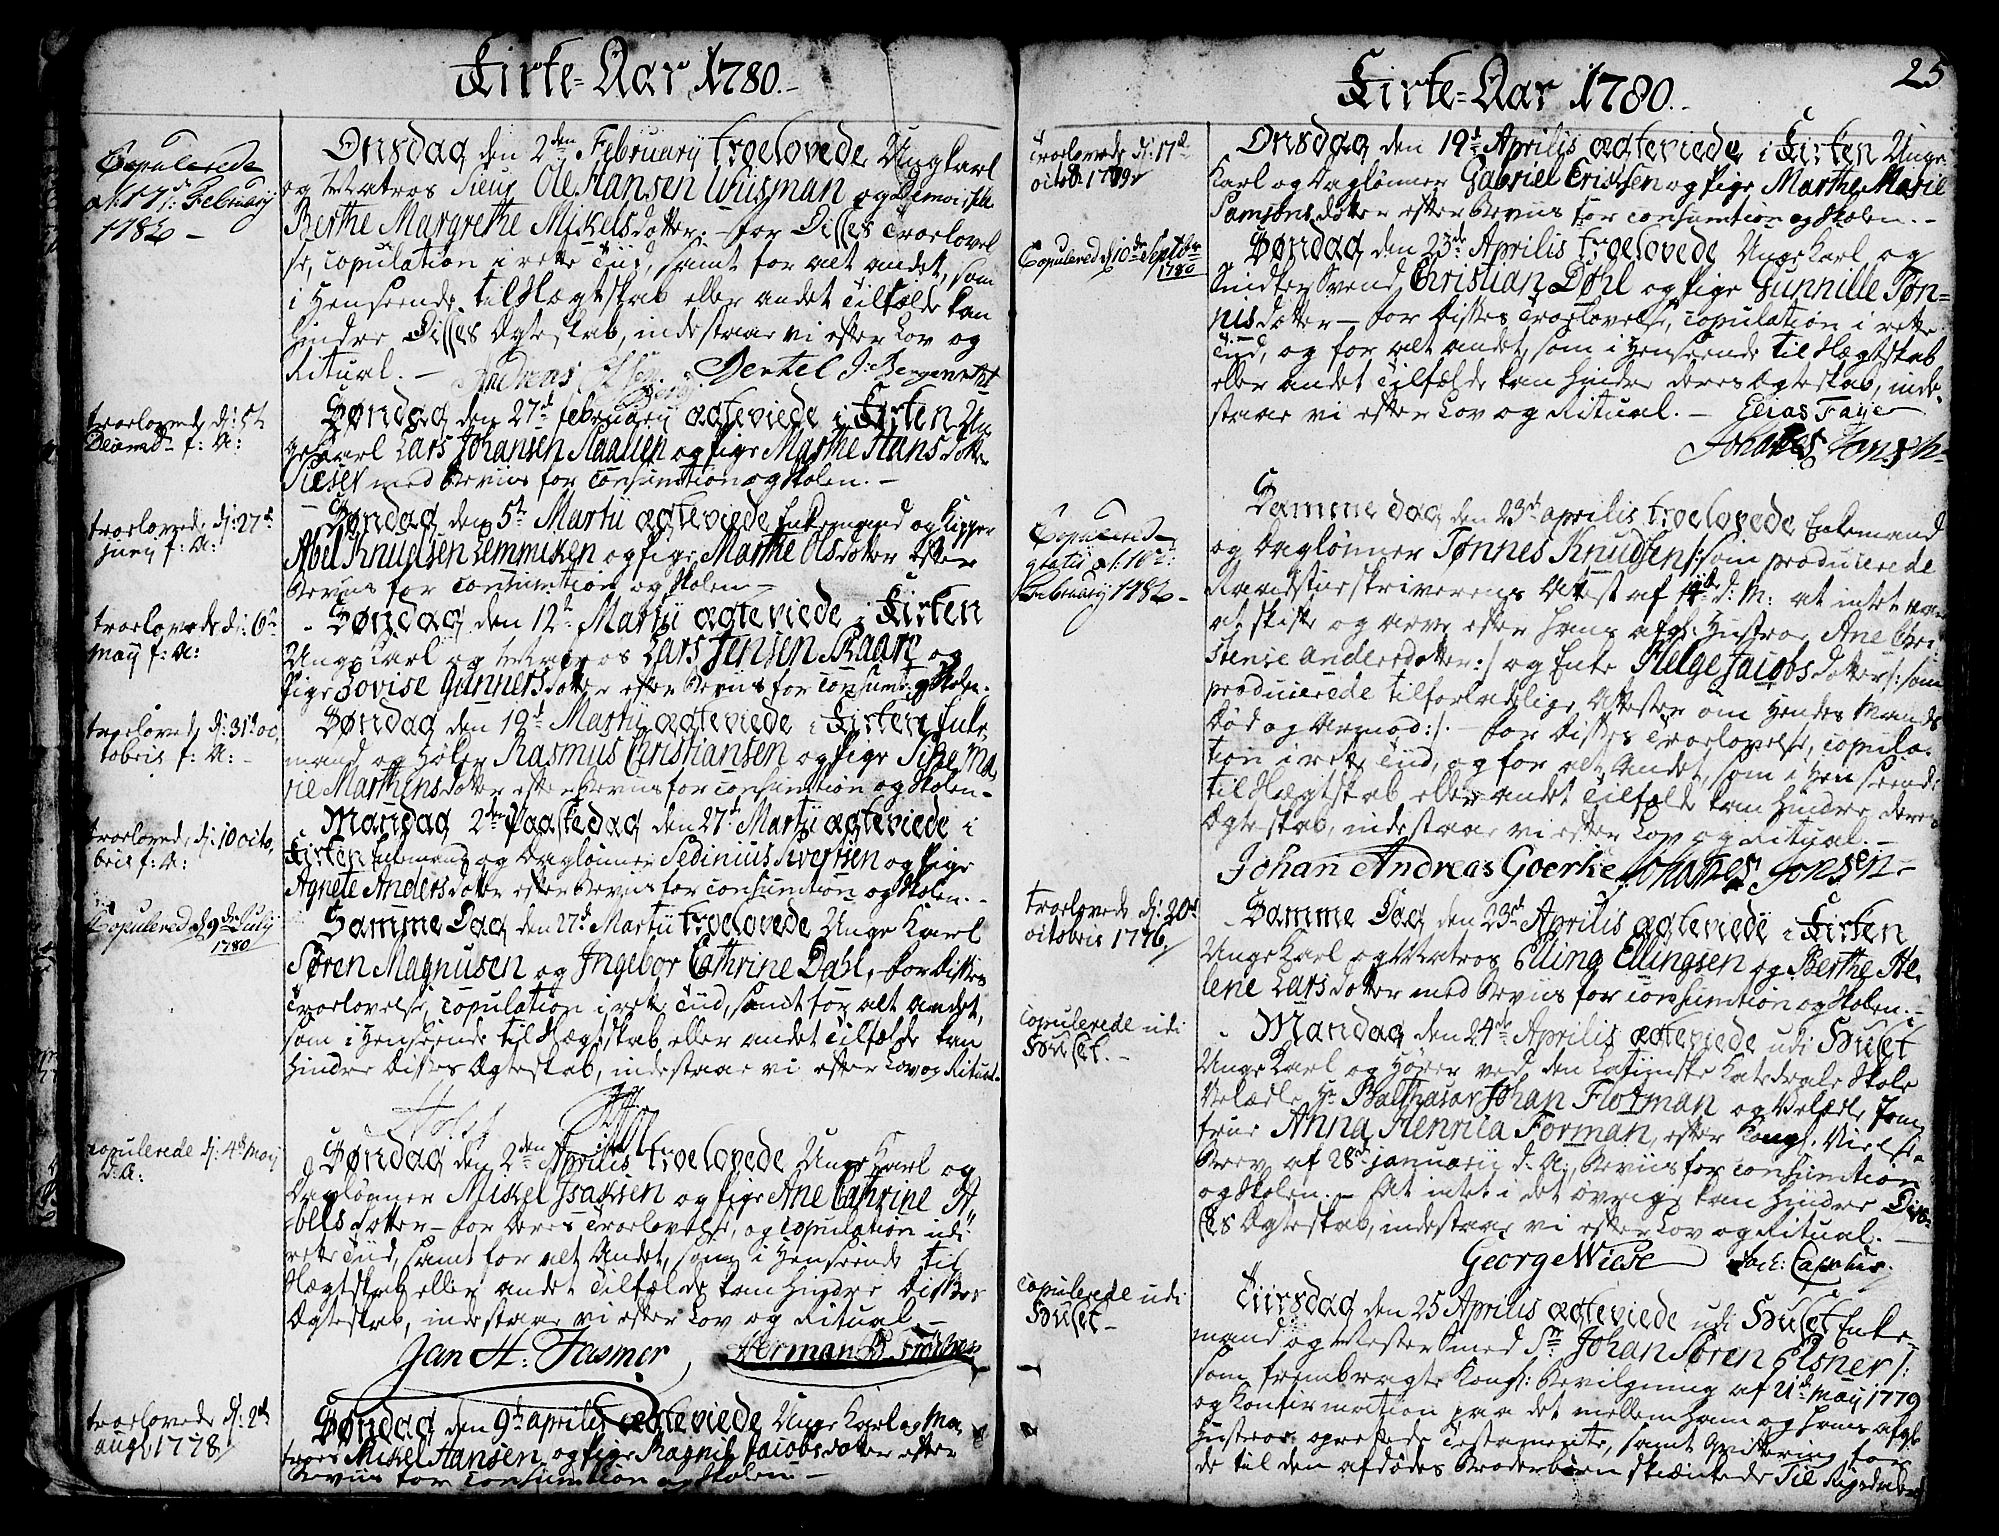 Kirke-Aar 1780.-
Copulerede
d: 17de February
1782 -
Onsdag den 2den February troelovede Ungkarl
og Matros Sieur Ole Hansen Wiisman og Demoiselle
Berthe Margrethe Mikelsdotter:- for Disses Troelovel
se, copulation i rette Tiid, samt for alt andet, som
i Henseende til Hægteskab eller andet Tilfælde kan
hindre Disses Ægteskab, indestaae vi efter Lov og
Ritual. - Bertel J: Bergen
troelovede d: 5t
f: A:
Søndag den 27d february ægteviede i Kirken Un
ge Karl Lars Johansen og Pige Marthe Hansdotter
med Beviis for consumtion og Skolen. -
troelovede d: 27d
f: A:
Søndag den 5t Martii ægteviede Enkemand og Kipper
Abel Knudsen Lemmiken og Pige Marthe Olsdotter efter
Beviis for consumtion og Skolen -
troelovede d: 6te
may f: A:
Søndag den 12t Martii ægteviede i Kirken
Unge Karl og Matros Lars Jensen Skaar og
Pige Lovise Gunnersdotter efter Beviis for consumt: og Skolen.
troelovede d: 31t oc,
tobris f: A: -
Søndag den 19d Martii ægteviede i Kirken Enke
mand og Høker Rasmus Christiansen og Pige Ma,
rie Marthinsdotter efter Beviis for consumtion og Skolen -
troelovede d: 10 octo,
bris f: A:
Mandag 2den Paaskedag den 27d Martii ægteviede i
Kirken Enkemand og Daglønner Sedinius Sivertsen og Pige
Agnete Andersdotter efter Beviis for consumtion og Skolen. -
Copulered d 9de July
1780
Samme Dag den 27d Martii troelovede Unge Karl
Søren Magnusen og Ingebor Cathrine Dahl, for Disses
Troelovelse, copulation i rette Tiid, samt for alt andet,
som i Henseende til Hægteskab eller andet Tilfælde kan
hindre Disses Ægteskab, indestaae vi efter Lov og Ritual.
copulerede d: 4de May
d: A:
Søndag den 2den Aprilis troelovede Unge Karl og
Daglønner Mikel Isaksen og Pige Ane Cathrine A,,
belsdotter - for Deres Troelovelse, og copulation udi
rette Tiid, samt for alt Andet, som i Henseende til
Hægteskab eller andet Tilfælde kan hindre Disses
Ægteskab, indestaae vi efter Lov og Ritual. -
Jan H: Fasmer Herman D
troelovede d: 2d
augt 1778/
Søndag den 9d aprilis ægteviede Unge Karl og Ma,
tros Mikel Hansen og Pige Ragnil Jacobsdotter efter
Beviis for consumtion og Skolen -
Kirke-Aar 1780.-
25
troelovede d: 17d
octob. 1779
Onsdag den 19d Aprilis ægteviede i Kirken Unge
Karl og Daglønner Gabriel Erissen og Pige Marthe Marie
Samsonsdotter efter Beviis for consumtion og Skolen. -
Copulered d 10de Septbr
1780
Søndag den 23de Aprilis troelovede Unge Karl og
Snidker Svend Christian Døhl og Pige Gunnille Tøn=
nisdotter - for Disses Troelovelse, copulation i rette
Tiid, og for alt andet, som i Henseende til Hægteskab
eller andet Tilfælde kan hindre deres Ægteskab, inde-
staae vi efter Lov og Ritual. - Elias Faye
Johanes Jonsen
Copulerede
gratis d: 10de:
February 1782 -
Samme dag den 23d aprilis troelovede Enkemand
og Daglønner Tønnes Knudsen /: som producerede
Raadstueskriverens Attest af d: M: at intet var
at skifte og arve efter Hans afg: Hustroe Ane Chri
stense Andersdotter:/ og Enke Helge Jacobsdotter /: som
producerede tilforladelige Attester om Hendes Mands
Død og Armod:/. - for Disses Troelovelse, copula-
tion i rette Tiid, og for alt Andet, som i Henseende
til Hægteskab eller andet Tilfælde kan hindre deres
Ægteskab, indestaae vi efter Lov og Ritual. -
Johan Andreas Goerke Johanes Jonsen -
troelovede d: 20d
octobris 1776/
Samme Dag den 23d Aprilis ægteviede i Kirken
Unge Karl og Matros Elling Ellingsen og Berthe He-
lene Larsdotter med Beviis for consumtion og Skolen. -
copulerede udi
Huset. -
Mandag den 24de Aprilis ægteviede udi Huset
Unge Karl og Hører ved den Latinske Katedrale Skole
Velædle Hr Balthasar Johan Florman og Velædle Jom
frue Anna Henrica Forman, efter Kongl. Vielse-
Brev af 28d januarii d. A:, Beviis for consumtion
og Skolen. - At intet i det øvrige kan hindre Dis-
ses Ægteskab, indestaae vi efter Lov og Ritual. -
George Wiese
copulerede udi
Huset -
Tiirsdag den 25 Aprilis ægteviede udi Huset Enke
mand og Mester Smed Sr Johan Søren Elsner /:
som frembragte Kongl: Bevilgning af 21d May 1779
og Konfirmation paa det mellem Ham og Hans afgl
Hustroe oprettede Testamente, samt Qvittering for
de til den afdødes Broderbørn skienkede